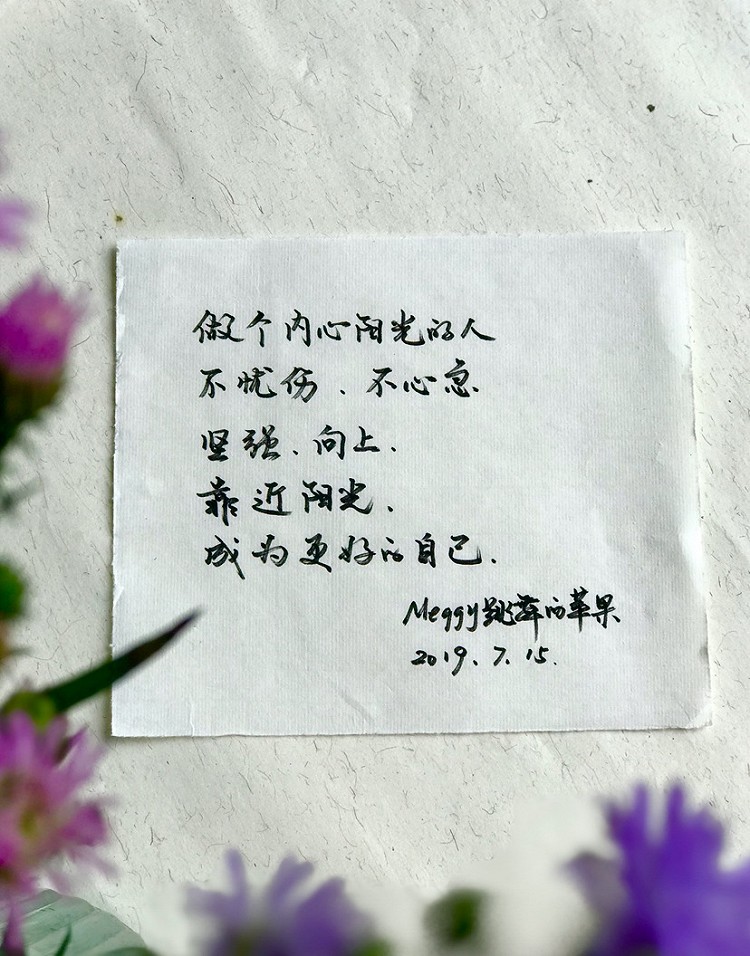 做个内心阳光的人
不忧伤、不心急
坚强、向上、
靠近阳光、
成为更好的自己.
Meggy跳舞的苹果
2019.7.15.